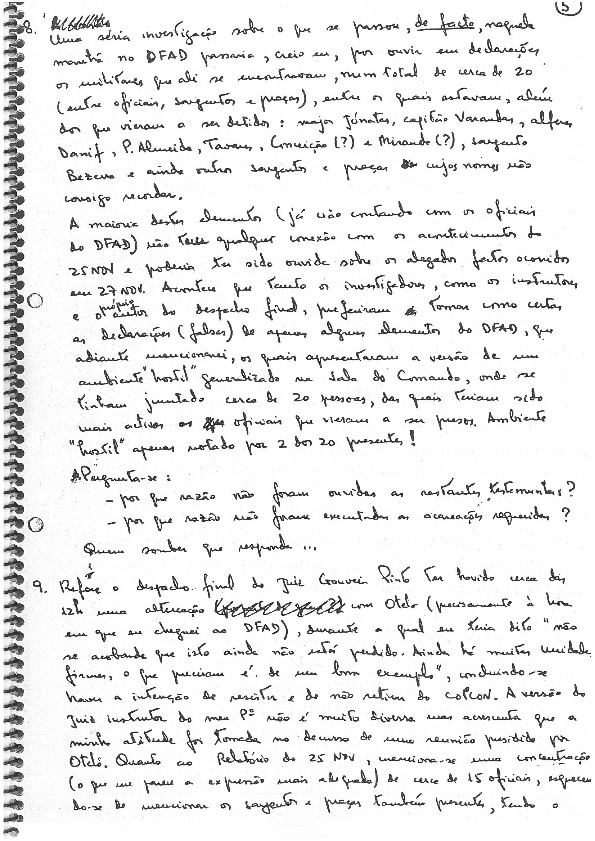 5
8. Uma séria investigação sobre o que se passou, de facto, naquela
manhã no DFAD passaria, creio eu, por ouvir em declarações
os militares que ali se encontravam, num total de cerca de 20
(entre oficiais, sargentos e praças), entre os quais estavam, além
dos que vieram a ser detidos: major Jónatas, capitão Varandas, alferes
Danif, P. Almeida, Tavares, Conceição (?) e Miranda (?), sargento
Bezerra e ainda outros sargentos e praças cujos nomes não
consigo recordar.
A maioria destes elementos (já não contando com os oficiais
do DFAD) não teve qualquer conexão com os acontecimentos do
25 NOV e poderia ter sido ouvida sobre os alegados factos ocorridos
em 27 NOV. Acontece que tanto os investigadores, como os instrutores
e o próprio autor do despacho final, preferiram tomar como certas
as declarações (falsas) de apenas alguns elementos do DFAD, que
adiante mencionarei, os quais apresentaram a versão de um
ambiente "hostil" generalizado na Sala do Comando, onde se
tinham juntado cerca de 20 pessoas, das quais teriam sido
mais activos os oficiais que vieram a ser presos. Ambiente
"hostil" apenas notado por 2 dos 20 presentes!
Pergunta-se:
- por que razão não foram ouvidas as restantes testemunhas?
- por que razão não foram executadas as acareações requeridas?
Quem souber que responda...
9. Refere o despacho final do Juiz Gouveia Pinto ter havido cerca das
12h uma altercação com Otelo (precisamente à hora
em que eu cheguei ao DFAD), durante a qual eu teria dito "não
se acobarde que isto ainda não está perdido. Ainda há muitas unidades
firmes, o que precisam é de um bom exemplo", concluindo-se
haver a intenção de resistir e de não retirar do COPCON. A versão do
Juiz instrutor do meu Pº não é muito diversa mas acrescenta que a
minha atitude foi tomada no decurso de uma reunião presidida por
Otelo. Quanto ao Relatório do 25 NOV, menciona-se uma concentração
(o que me parece a expressão mais adequada) de cerca de 15 oficiais, esquecen
do-se de mencionar os sargentos e praças também presentes, tendo o